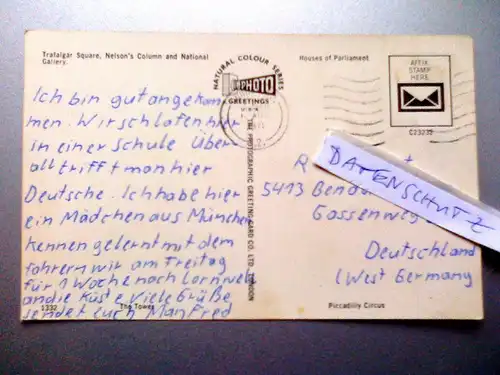 Trafalgar Square, Nelson's Column and National
Gallery.
Houses of Parliament
NATURAL COLOUR SERIES
PHOTO
GREETINGS
AFFIX
STAMP
HERE
C23235
Ich bin gut angekom
men. Wir schlafen hier
in einer Schule Über
all trifft man hier
Deutsche. Ich habe hier
ein Mädchen aus München
kennen gelernt mit dem
fahren wir am Freitag
für 1 Woche nach Cornwel
an die Küste Viele Grüße
sendet Euch Manfred
THE PHOTOGRAPHIC GREETING CARD CO. LTD. LONDON
DATENSCHUTZ
R
5413 Bendo
Gassenweg
Deutschland
(West Germany
1332
The Tower
Piccadilly Circus